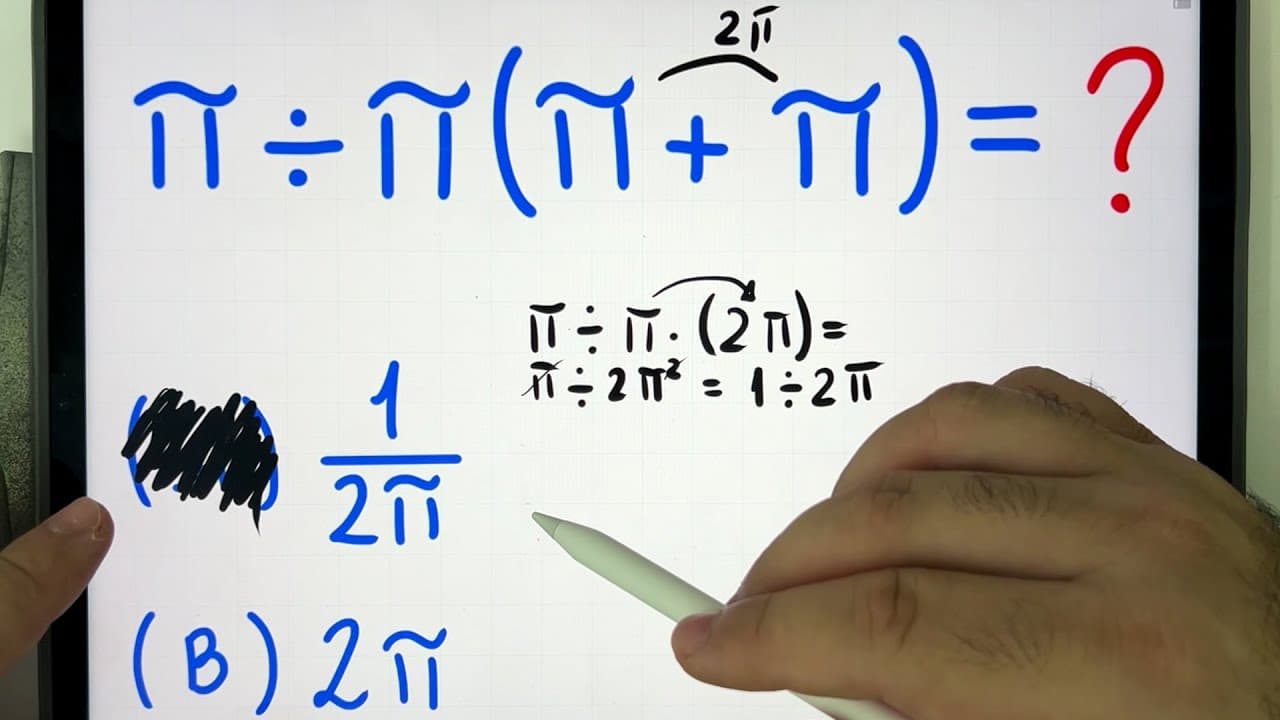 2π
π ÷ π(π + π) = ?
π ÷ π · (2π) =
π ÷ 2π² = 1 ÷ 2π
1
2π
(B) 2π